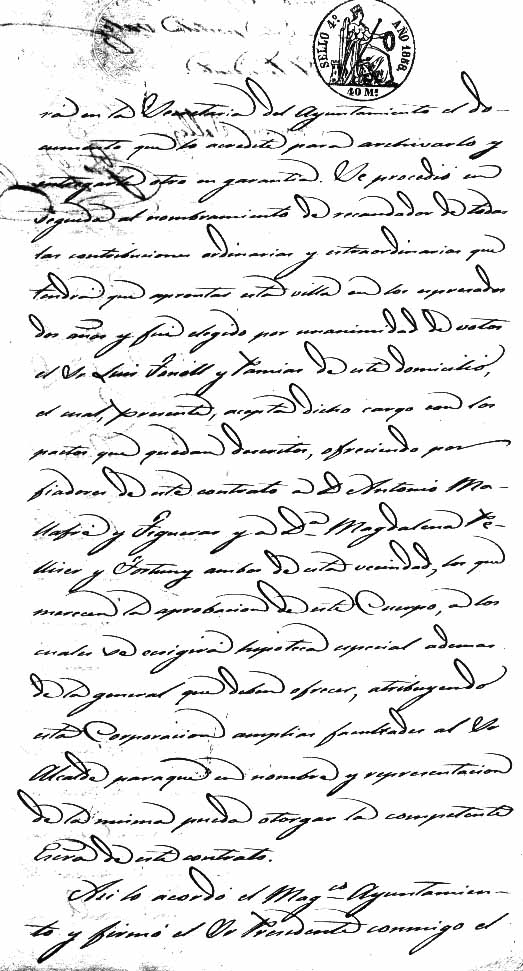 SELLO 4º AÑO 1868.
40 Ms
rá en la Secretaria del Ayuntamiento el do-
cumento que lo acredite para archivarlo y
entregarle otro en garantia. Se procedió en
seguida al nombramiento de recaudador de todas
las contribuciones ordinarias y estraordinarias que
tendrá que aprontar esta villa en los espresados
dos años y fue elegido por unanimidad de votos
el Sr Luis Fenoll y Tamias de este domicilio,
el cual, presente, acepta dicho cargo con los
pactos que quedan descritos, ofreciendo por
fiadores de este contrato a D. Antonio Ma-
llafré y Figueras y a D.ª Magdalena Pe-
llicer y Fortuny ambos de esta vecindad, los que
merecen la aprobacion de este Cuerpo, a los
cuales se ecsigirá hipoteca especial ademas
de la general que deben ofrecer, atribuyendo
esta Corporacion amplias facultades al Sr
Alcalde para que en nombre y representacion
de la misma pueda otorgar la competente
Escra de este contrato.
Asi lo acordó el Mag.co Ayuntamien-
to y firmó el Sr Presidente conmigo el